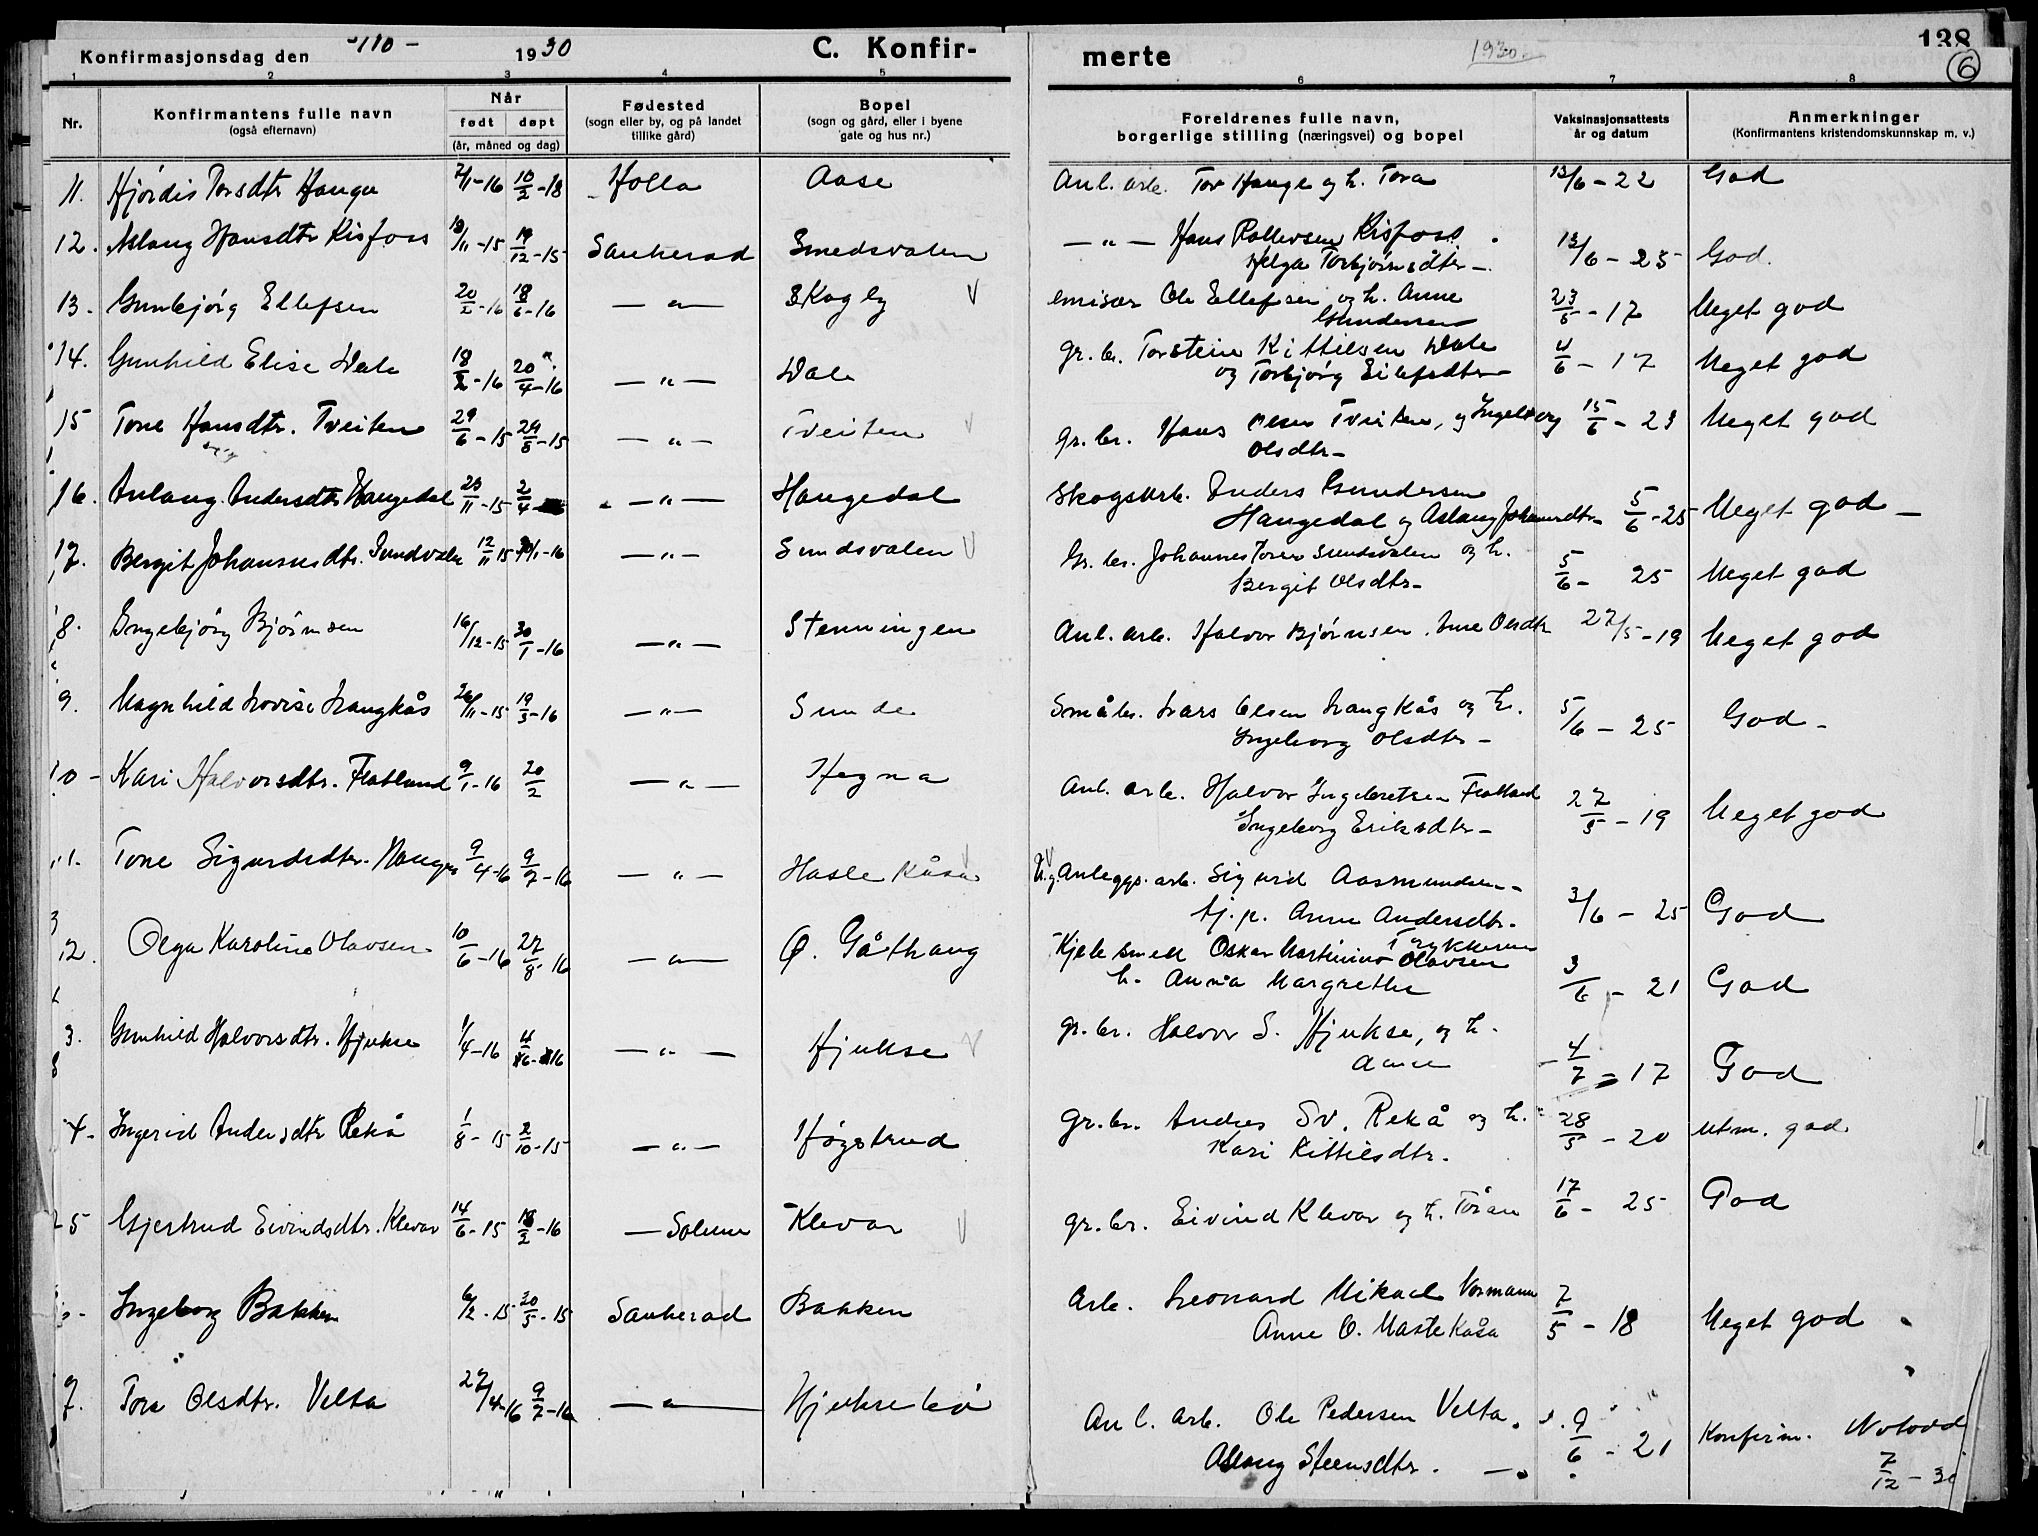 138
6
Konfirmasjonsdag den 5/10 - 1930 C. Konfir-
merte 1930.
1 2 3 4 5 6 7 8
Nr. Konfirmantens fulle navn (også efternavn) Når født døpt (år, måned og dag) Fødested (sogn eller by, og på landet tillike gård) Bopel (sogn og gård, eller i byene gate og hus nr.) Foreldrenes fulle navn, borgerlige stilling (næringsvei) og bopel Vaksinasjonsattests år og datum Anmerkninger (Konfirmantens kristendomskunnskap m. v.)
11. Hjördis Torsdtr Hauga 2/1-16 10/2-18 Holla Aase Anl. arb. Tor Hauge og h. Tora 13/6-22 God
12. Aslaug Hansdtr Risfoss 18/11-15 19/12-15 Sauherad Smedsvalen -"- Hans Rollevsen Risfoss 13/6-25 God.
Helga Torbjørnsdtr-
13. Gunbjörg Ellefsen 20/2-16 18/6-16 -"- Skogly V emisær Ole Ellefsen og h. Anne 23/5-17 Meget god
Gundersen
14. Gunhild Elise Dale 18/2-16 20/4-16 -"- Dale gr. br. Torstein Kittilsen Dale 4/6-17 Meget god
og Torbjörg Eilefsdtr-
15 Tone Hansdtr. Tveiten 29/6-15 29/8-15 -"- Tveiten V gr. br. Hans Olsen Tveiten, og Ingeborg 15/6-23 Meget god
Olsdtr-
16. Anlaug Andersdtr Haugedal 23/11-15 2/4-16 -"- Haugedal Skogsarb. Anders Gundersen
Haugedal og Aslaug Johannsdtr- 5/6-25 Meget god-
17. Bergit Johannesdtr. Sundvalen 12/11 15 30/1-16 -"- Sundsvalen V Gr. br. Johannes Torsen Sundsvalen og h. 5/6- 25 Meget god
Bergit Olsdtr-
8. Ingebjörg Bjørnsen 16/12-15 30/1-16 -"- Stenningen Anl. arb. Halvor Bjørnsen. Ene Olsdtr 27/5-19 Meget god
9. Magnhild Lovise Langkås 26/11-15 19/3-16 -"- Sunde Småbr. Lars Olsen Langkås og h. 5/6-25 God-
Ingeborg Olsdtr-
0- Kari Halvorsdtr. Flatland 9/1-16 20/2 -"- Hegna Anl. arb. Halvor Ingebretsen Flatland 27/5-19 Meget god
Ingeborg Eriksdtr-
1. Tone Sigurdsdtr. Haugen 9/4-16 9/7-16 -"- Haslekåsa V U.g. Anleggs. arb. Sigurd Aasmundsen-
tj.p. Anne Andersdtr. 3/6-25 God
2. Olga Karoline Olavsen 10/6-16 27/8 16 -"- Ø. Gåthaug Kjelesmed Oskar Martinius Olavsen
h. Anna Margrethe 3/6-21 God
3. Gunhild Halvorsdtr. Hjukse 1/4-16 4/6-16 -"- Hjukse V gr. br. Halvor S. Hjukse, og h.
Anne 4/7-17 God
4- Ingerid Andersdtr Rekå 1/8-15 2/10-15 -"- Högstrud gr. br. Andres Sv. Rekå og h. 28/5-20 Utm. god.
Kari Kittilsdtr.
25 Gjertrud Eivindsdtr. Klevar 14/6-15 18/2-16 - Solum Klevar V gr. br. Eivind Klevar og h. Töran 17/6-25 God
6- Ingeborg Bakken 6/2-15 30/5-15 Sauherad Bakken Arb. Leonard Mikael Vormann 7/5-18 Meget god
Anne O. Mastekåsa
7. Tora Olsdtr. Velta 27/4-16 9/7-16 -"- Hjuksebö Anl. arb. Ole Pedersen Velta. 9/6-21 Konfirm. Notodd
Aslaug Steensdtr. - 7/12-30